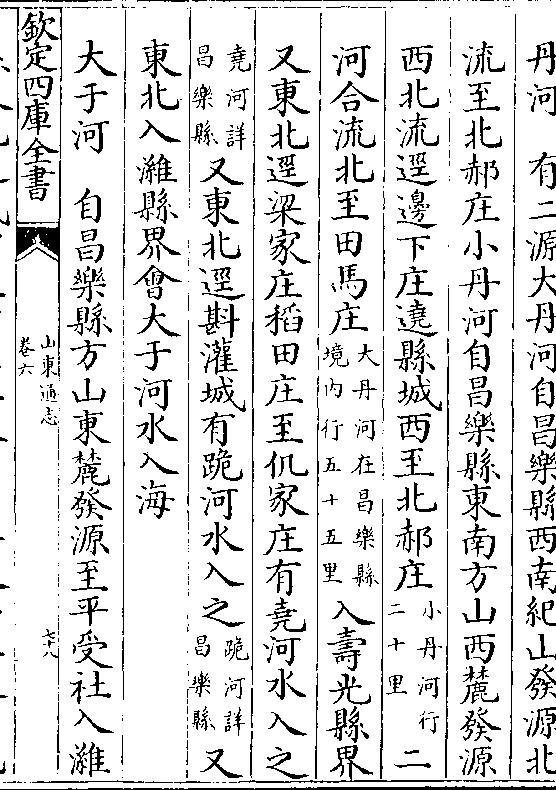 丹河　有二源大丹河自昌樂縣西南紀山發源北
流至北郝庄小丹河自昌樂縣東南方山西麓發源
西北流逕邊下庄遶縣城西至北郝庄小丹河行二十里二
河合流北至田馬庄大丹河在昌樂縣境内行五十五里入壽光縣界
又東北逕梁家庄稻田庄至仉家庄有堯河水入之
堯河詳昌樂縣又東北逕斟灌城有跪河水入之跪河詳昌樂縣又
東北入濰縣界會大于河水入海
大于河　自昌樂縣方山東麓發源至平受社入濰
欽定四庫全書
山東通志
卷六
七十八